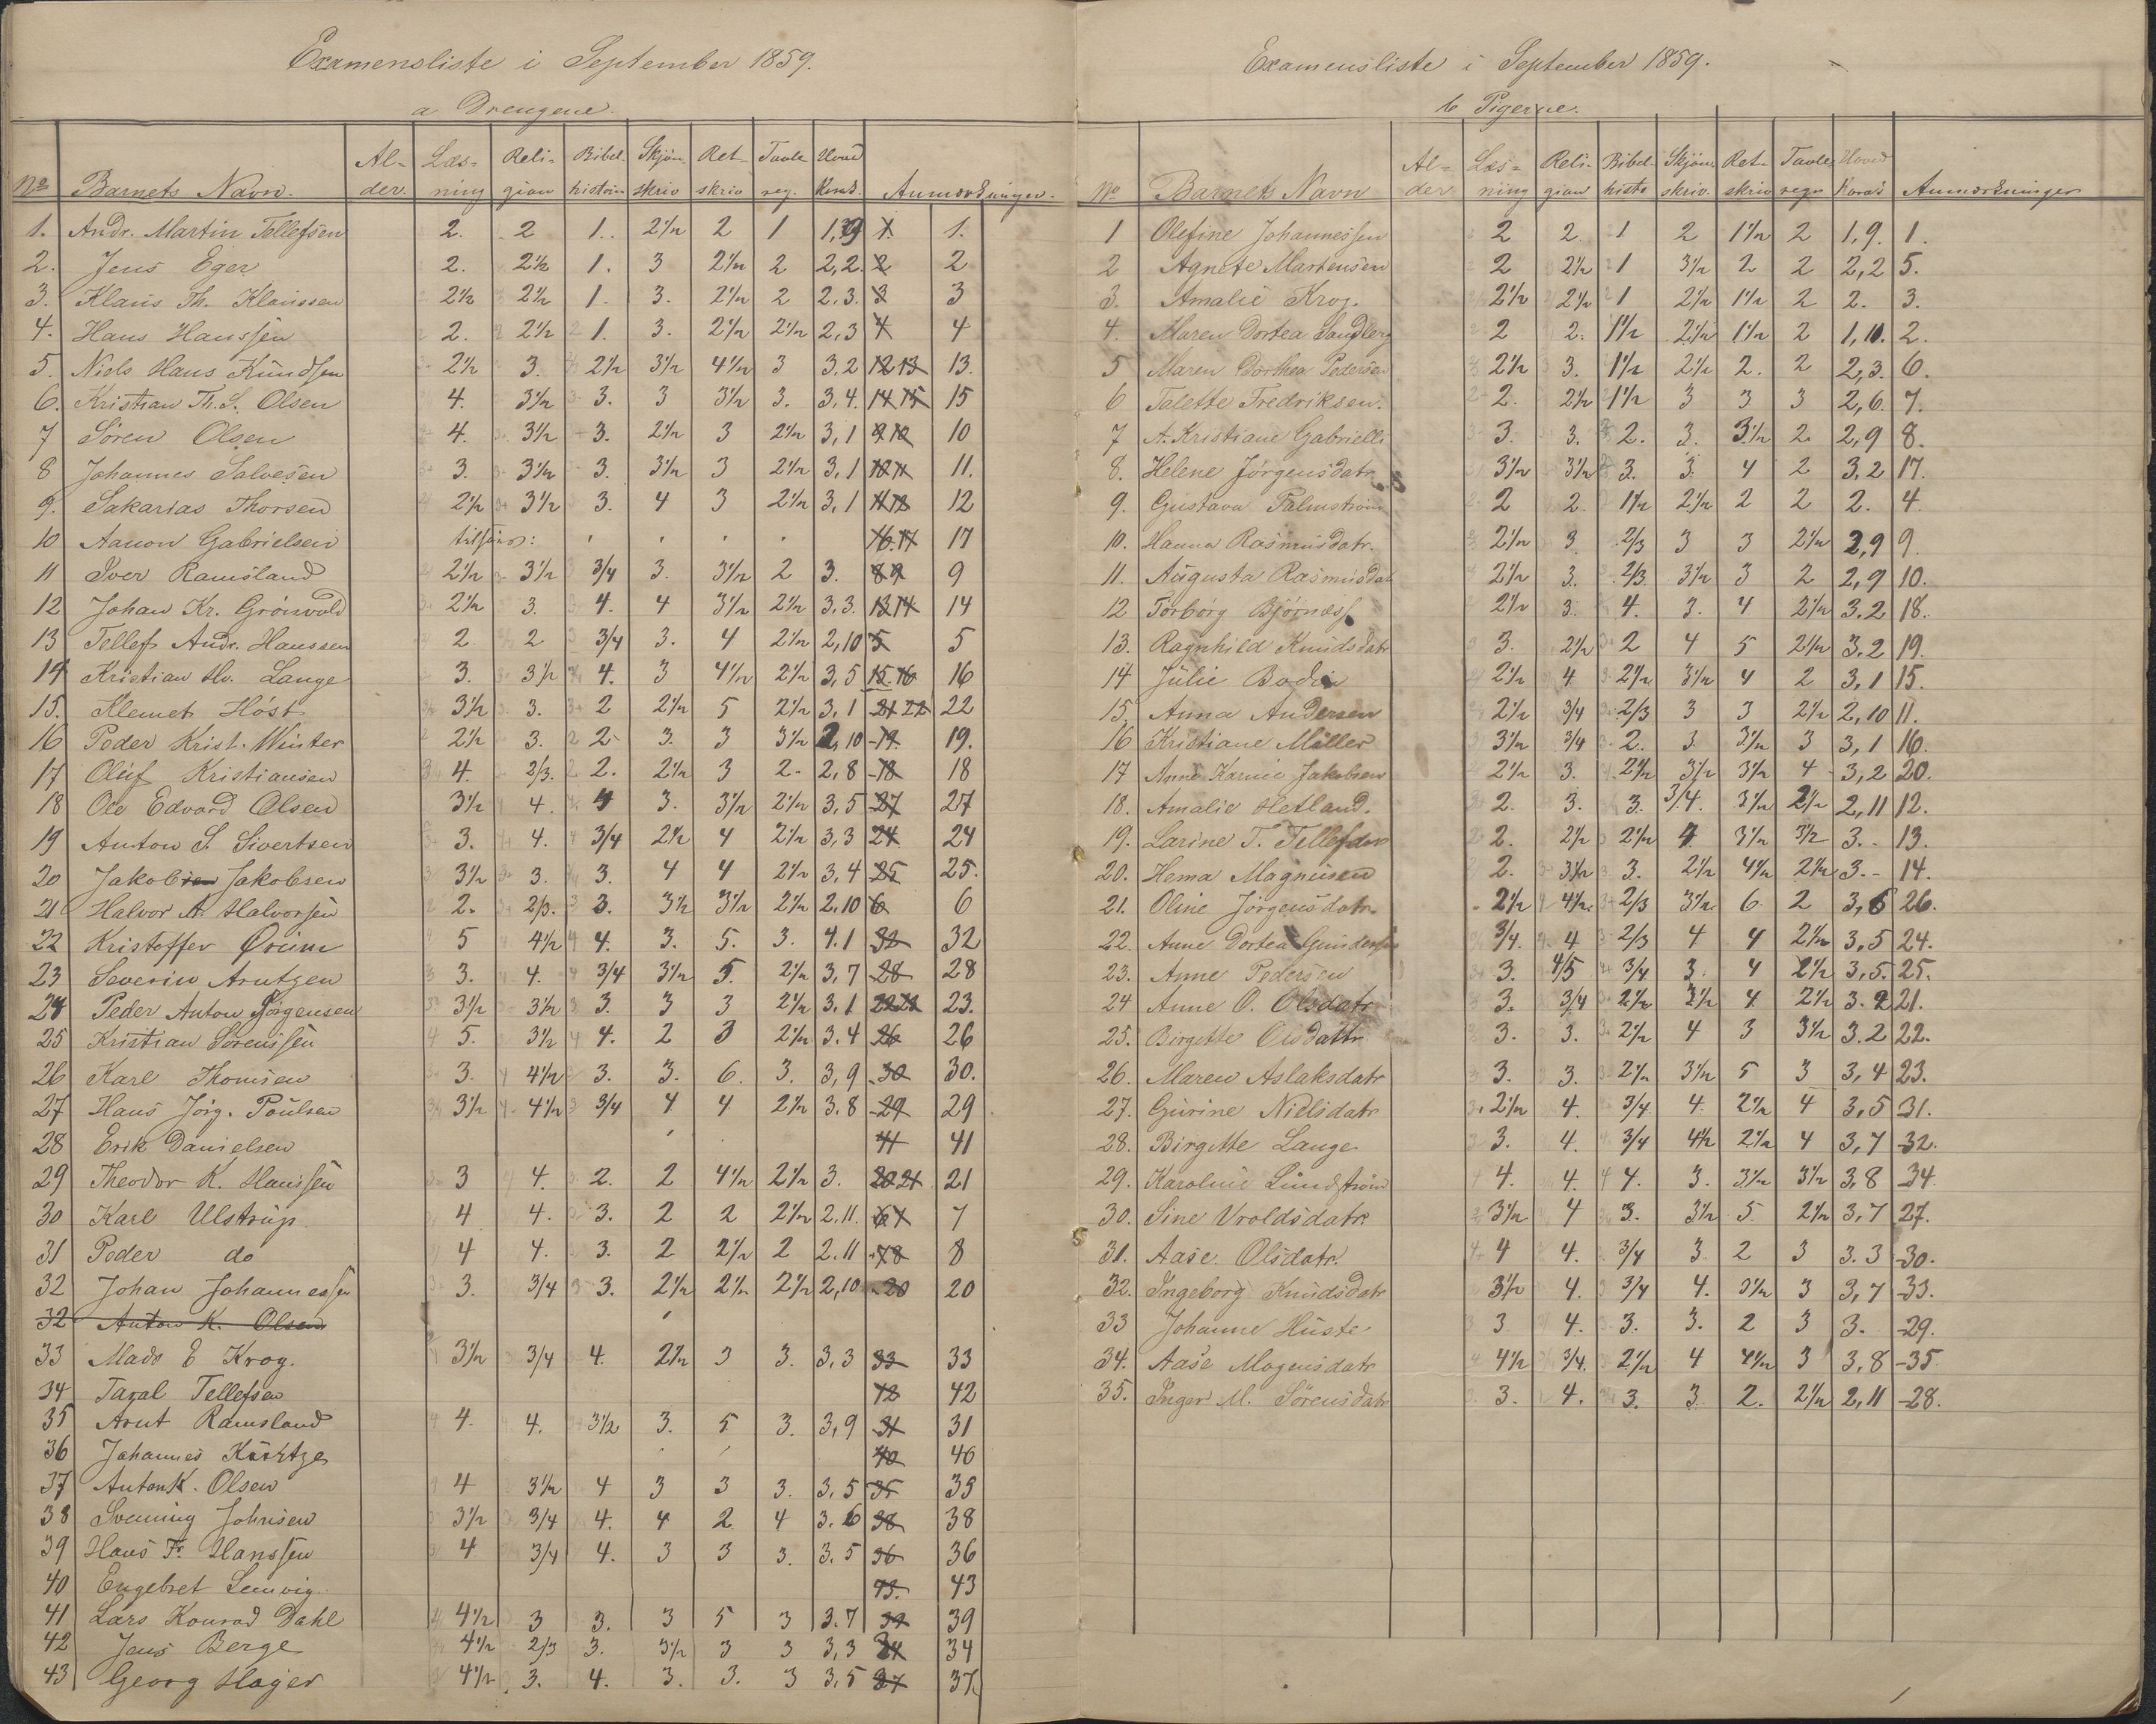 Examensliste i September 1859.
a Drengene.
No Barnets Navn. Al-der. Læs-ning Reli-gion Bibel historie Skjön skriv Ret-skriv Tavle reg. Hoved Karak. Anmærkninger.
1. Andr. Martin Tellefsen 2. 2 1. 2 1/2 2 1 1,9 1. 1.
2. Jens Eger 2. 2 1/2 1. 3 2 1/2 2 2,2. 2. 2
3. Klaus Th. Klaussen 2 1/2 2 1/2 1. 3. 2 1/2 2 2.3. 3 3
4. Hans Hanssen 2. 2 1/2 1. 3. 2 1/2 2 1/2 2,3 4 4
5. Niels Haus Knudsen 2 1/2 3. 2 1/2 3 1/2 4 1/2 3 3,2 12 13 13.
6. Kristian Th. S. Olsen 4. 3 1/2 3. 3 3 1/2 3. 3,4. 14 15 15
7 Sören Olsen 4. 3 1/2 3. 2 1/2 3 2 1/2 3,1 9 10 10
8 Johannes Salvesen 3. 3 1/2 3. 3 1/2 3 2 1/2 3,1 10 11 11.
9. Sakarias Thorsen 2 1/2 3 1/2 3. 4 3 2 1/2 3,1 11 12 12
10 Aanon Gabrielsen 16. 17 17
11 Iver Ramsland 2 1/2 3 1/2 3/4 3. 3 1/2 2 3. 8 9 9
12 Johan Kr. Grönvold 2 1/2 3. 4. 4 3 1/2 2 1/2 3,3. 13 14 14
13 Tellef Andr. Hanssen 2 2 3/4 3. 4 2 1/2 2,10 5 5
14 Kristian Hv. Lange 3. 3 1/2 4. 3 4 1/2 2 1/2 3,5 15. 16 16
15. Klemet Höst 3 1/2 3. 2 2 1/2 5 2 1/2 3,1 21 22 22
16 Peder Krist. Winter 2 1/2 3. 2 3. 3 3 1/2 2,10 19. 19.
17 Oluf Kristiansen 4. 2/3. 2. 2 1/2 3 2. 2,8 18 18
18 Ole Edvard Olsen 3 1/2 4. 4 3. 3 1/2 2 1/2 3,5 27 27
19 Anton S. Sivertsen 3. 4. 3/4 2 1/2 4 2 1/2 3,3 24 24
20 Jakobsen Jakobsen 3 1/2 3. 3. 4 4 2 1/2 3,4 25 25.
21 Halvor A. Halvorsen 2. 2/3. 3. 3 1/2 3 1/2 2 1/2 2.10 6 6
22 Kristoffer Örum 5 4 1/2 4. 3. 5. 3. 4.1 32 32
23 Severin Arntzen 3. 4. 3/4 3 1/2 5. 2 1/2 3,7 28 28
24 Peder Anton Jörgensen 3 1/2 3 1/2 3. 3 3 2 1/2 3.1 22 23 23.
25 Kristian Sörenssen 5. 3 1/2 4. 2 3 2 1/2 3.4 26 26
26 Karl Thomsen 3. 4 1/2 3. 3. 6. 3. 3,9 30 30.
27 Hans Jörg. Poulsen 3 1/2 4 1/2 3/4 4 4 2 1/2 3.8 29 29
28 Erik Danielsen 41 41
29 Theodor K. Hanssen 3 4. 2. 2 4 1/2 2 1/2 3. 20 21 21
30 Karl Ulstrup. 4 4. 3. 2 2 2 1/2 2.11. 6 7 7
31 Peder do 4 4. 3. 2 2 1/2 2 2.11 7 8 8
32 Johan Johannessen 3. 3/4 3. 2 1/2 2 1/2 2 1/2 2,10 20 20
32 Anton K. Olsen
33 Mads E Krog. 3 1/2 3/4 4. 2 1/2 3 3. 3,3 33 33
34 Taral Tellefsen 42 42
35 Arnt Ramsland 4. 4. 3 1/2 3. 5 3. 3,9 31 31
36 Johannes 40 40
37 Anton K. Olsen 4 3 1/2 4 3 3 3. 3,5 35 35
38 Svenning Johnsen 3 1/2 3/4 4. 4 2 4 3.6 38 38
39 Hans Fr. Hanssen 4 3/4 4. 3 3 3. 3.5 36 36
40 Engebret Lemvig. 43. 43
41 Lars Konrad Dahl 4 1/2 3 3. 3 5 3 3.7 39 39
42 Jens Berge 4 1/2 2/3 3. 3 1/2 3 3 3,3 34 34
43 Georg Hager 4 1/2 3. 4. 3. 3. 3 3,5 37 37.
Examensliste i September 1859.
b Pigerne.
No Barnets Navn Al-der Læs-ning Reli-gion Bibel histo Skjön skriv. Ret-skriv Tavle regn Hoved Karak Anmærkninger
1 Olefine Johannessen 2 2 1 2 1 1/2 2 1,9. 1.
2 Agnete Martensen 2 2 1/2 1 3 1/2 2 2 2,2 5.
3. Amalie Krog. 2 1/2 2 1/2 1 2 1/2 1 1/2 2 2. 3.
4. Maren Dortea Sandberg 2 2. 1 1/2 2 1/2 1 1/2 2 1,10. 2.
5 Maren Dorthea Pedersen 2 1/2 3. 1 1/2 2 1/2 2. 2 2,3. 6.
6 Talette Fredriksen. 2. 2 1/2 1 1/2 3 3 3 2,6. 7.
7 A. Kristiane Gabrielli 3. 3. 2. 3. 3 1/2 2. 2,9 8.
8. Helene Jörgensdatr. 3 1/2 3 1/2 3. 3. 4 2 3.2 17.
9. Gustava Palmström 2 2. 1 1/2 2 1/2 2 2 2. 4.
10. Hanna Rasmusdatr. 2 1/2 3 2/3 3 3 2 1/2 2,9 9.
11. Augusta Rasmusdat 2 1/2 3. 2/3 3 1/2 3 2 2,9 10.
12 Torborg Björness 2 1/2 3. 4. 3. 4 2 1/2 3.2 18.
13. Ragnhild Knudsdatr 3. 2 1/2 2 4 5 2 1/2 3.2 19.
14 Julie Bodin 2 1/2 4 2 1/2 3 1/2 4 2 3,1 15.
15. Anna Andersen 2 1/2 3/4 2/3 3 3 2 1/2 2,10 11.
16 Kristiane Möller 3 1/2 3/4 2. 3 3 1/2 3 3,1 16.
17 Anne Karine Jakobsen 2 1/2 3. 2 1/2 3 1/2 3 1/2 4 3,2 20.
18. Amalie Hetland. 2. 3. 3. 3/4. 3 1/2 2 1/2 2,11 12.
19. Larine T. Tellefsen 2. 2 1/2 2 1/2 4 3 1/2 3 1/2 3. 13.
20. Hema Magnusen 2. 3 1/2 3. 2 1/2 4 1/2 2 1/2 3. 14.
21. Oline Jörgensdatr. 2 1/2 4 1/2 2/3 3 1/2 6 2 3,6 26.
22. Anne Dortea Gundersen 3/4. 4 2/3 4 4 2 1/2 3,5 24.
23. Anne Pedersen 3. 4/5 3/4 3. 4 2 1/2 3,5. 25.
24 Anne O. Olsdatr 3. 3/4 2 1/2 3 1/2 4 2 1/2 3.2 21.
25. Birgitte 3. 3. 2 1/2 4 3 3 1/2 3.2 22.
26. Maren Aslaksdatr 3. 3. 2 1/2 3 1/2 5 3 3,4 23.
27. Gurine Nielsdatr 2 1/2 4. 3/4 4. 2 1/2 4 3,5 31.
28. Birgitte Lange 3. 4. 3/4 4 1/2 2 1/2 4 3,7 32.
29. Karoline Lundström 4. 4. 4. 3. 3 1/2 3 1/2 3,8 34.
30. Sine Vroldsdatr. 3 1/2 4 3. 3 1/2 5. 2 1/2 3,7 27.
31. Aase Olsdatr. 4 4. 3/4 3. 2 3 3.3 30.
32. Ingeborg Knudsdatr 3 1/2 4. 3/4 4. 3 1/2 3 3,7 33.
33 Johanne Huste 3 4. 3. 3. 2 3 3. 29.
34. Aase Mogensdatr 4 1/2 3/4. 2 1/2 4 4 1/2 3 3,8 35
35. Inger M. Sörensdatr 3. 4. 3. 3. 2. 2 1/2 2,11 28.